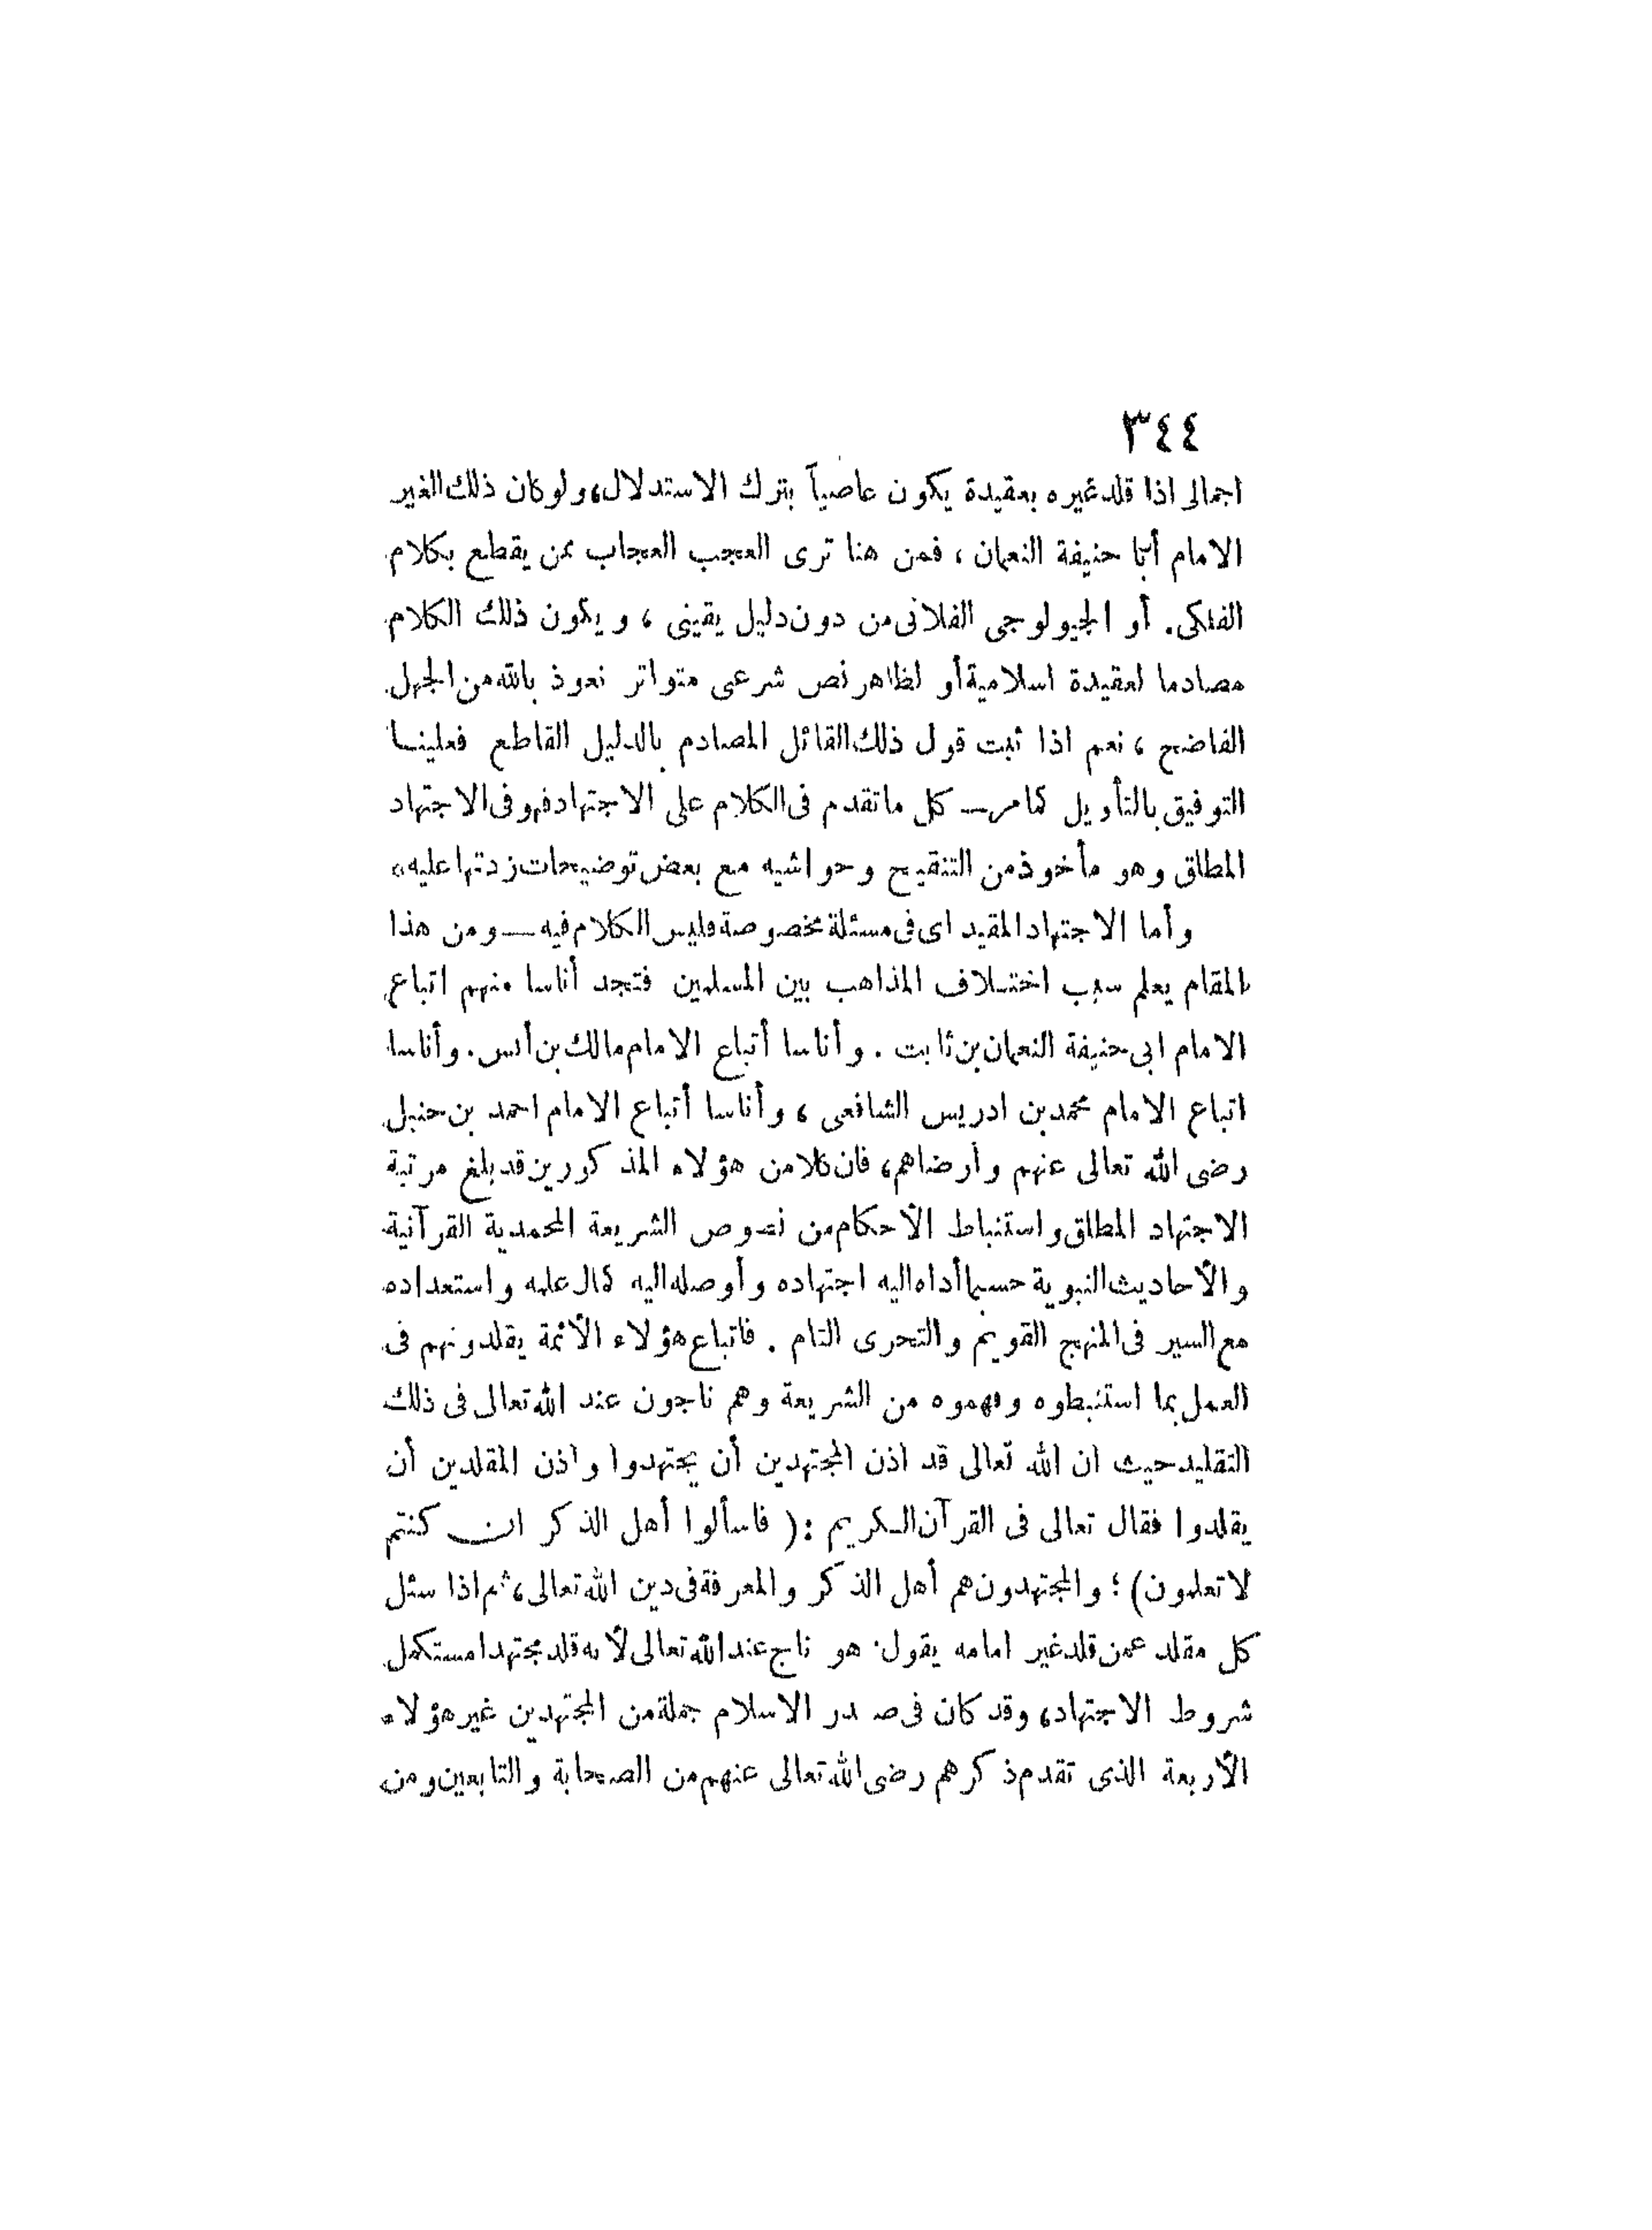 ٣٤٤
اجمالى اذا قلد غيره بعقيدة يكون عاصياً بترك الاستدلال، ولو كان ذلك الغير
الامام أبا حنيفة النعمان ، فمن هنا ترى العجب العجاب ممن يقطع بكلام
الفلكى. أو الجيولوجى الفلانى من دون دليل يقينى ، و يكون ذلك الكلام
مصادما لعقيدة اسلامية أو لظاهر نص شرعى متواتر نعوذ بالله من الجهل
الفاضح ، نعم اذا ثبت قول ذلك القائل المصادم بالدليل القاطع فعلينا
التوفيق بالتأويل كما مر — كل ما تقدم فى الكلام على الاجتهاد فهو فى الاجتهاد
المطلق وهو مأخوذ من التنقيح وحواشيه مع بعض توضيحات زدتها عليه،
وأما الاجتهاد المقيد اى فى مسئلة مخصوصة فليس الكلام فيه — ومن هذا
المقام يعلم سبب اختلاف المذاهب بين المسلمين فتجد أناسا منهم اتباع
الامام ابى حنيفة النعمان بن ثابت . وأناسا أتباع الامام مالك بن أنس . وأناسا
اتباع الامام محمد بن ادريس الشافعى ، وأناسا أتباع الامام احمد بن حنبل
رضى الله تعالى عنهم وأرضاهم، فان كلا من هؤلاء المذكورين قد بلغ مرتبة
الاجتهاد المطلق واستنباط الأحكام من نصوص الشريعة المحمدية القرآنية
والأحاديث النبوية حسبما أداه اليه اجتهاده وأوصله اليه كمال علمه واستعداده
مع السير فى المنهج القويم والتحرى التام . فاتباع هؤلاء الأئمة يقلدونهم فى
العمل بما استنبطوه وفهموه من الشريعة وهم ناجون عند الله تعالى فى ذلك
التقليد حيث ان الله تعالى قد اذن المجتهدين أن يجتهدوا واذن المقلدين أن
يقلدوا فقال تعالى فى القرآن الكريم :( فاسألوا أهل الذكر ان كنتم
لا تعلمون) ؛ والمجتهدون هم أهل الذكر والمعرفة فى دين الله تعالى، ثم اذا سئل
كل مقلد عمن قلد غير امامه يقول هو ناج عند الله تعالى لأنه قلد مجتهدا مستكمل
شروط الاجتهاد، وقد كان فى صدر الاسلام جملة من المجتهدين غير هؤلاء
الأربعة الذى تقدم ذكرهم رضى الله تعالى عنهم من الصحابة والتابعين ومن